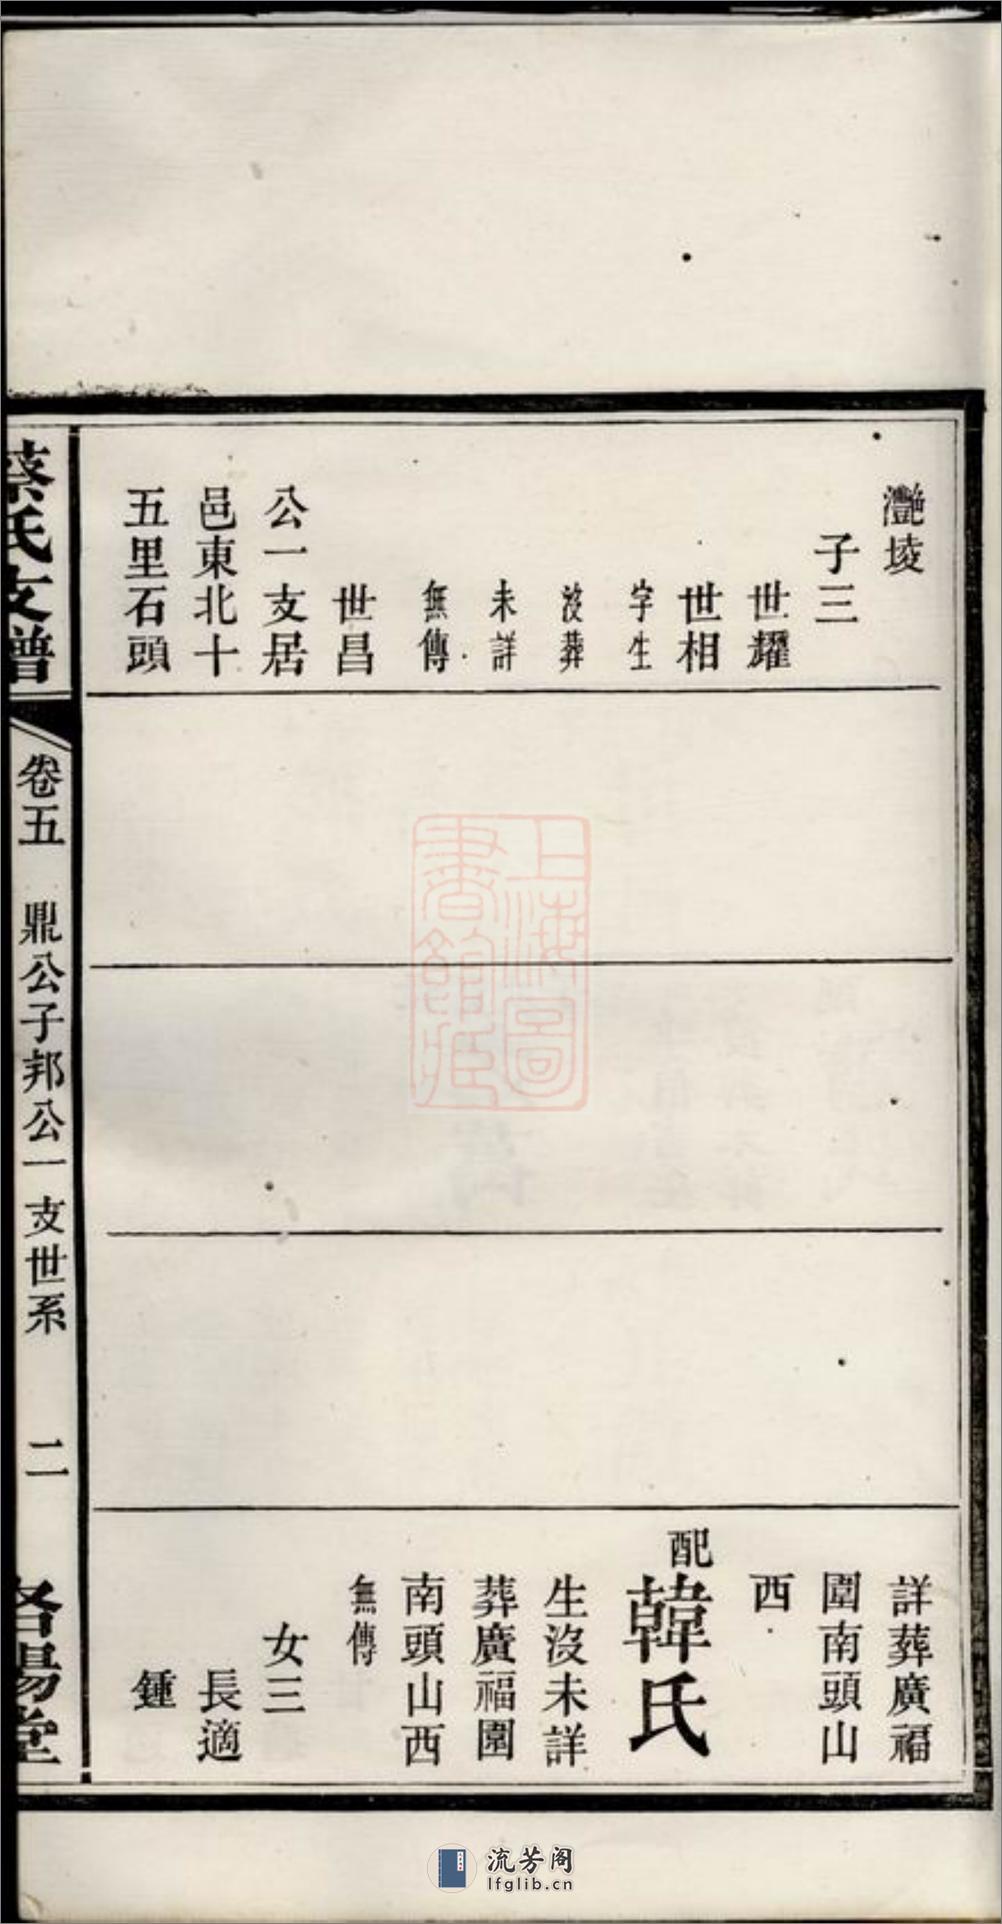 灩堎
子三
世耀
世相
字生
沒葬
未詳
無傳
世昌
公一支居
邑東北十
五里石頭
詳葬廣福
圍南頭山
西
配韓氏
生沒未詳
葬廣福園
南頭山西
無傳
女三
長適
鍾
蔡氏支譜
卷五 鼎公子邦公一支世系 二
洛陽堂
上海圖
書館藏
流芳阁
lfglib.cn